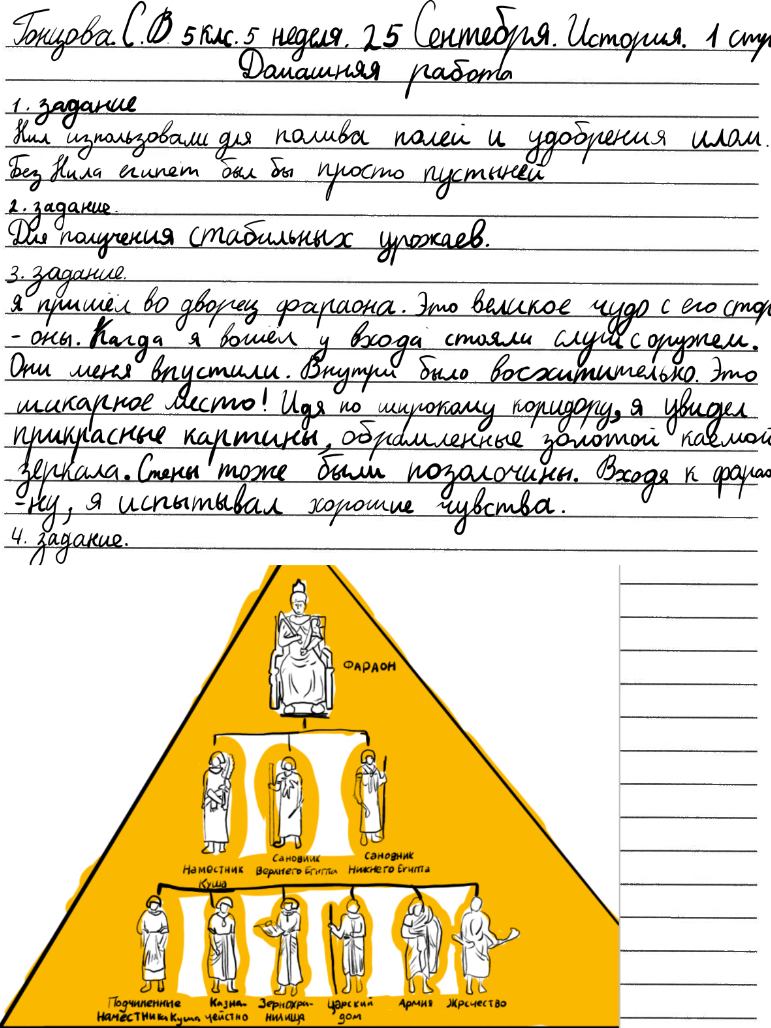 Гонцова. С.В. 5 клс. 5 неделя. 25 Сентебря. История. 1 стр
Домашняя работа
1. задание
Нил изпользовали для полива полей и удобрения илом.
Без Нила египет был бы просто пустыней
2. задание.
Для получения стабильных урожаев.
3. задание.
я пришёл во дворец фараона. Это великое чудо с его стор
-оны. Кагда я вошёл у входа стояли слуги с оружем.
Они меня впустили. Внутри было восхитительно. Это
шикарное место! Идя по широкому коридору, я увидел
прикрасные картины, обрамленные золотой каемой
зеркала. Стены тоже были позолочины. Входя к фарао
-ну, я испытывал хорошие чувства.
4. задание.
ФАРАОН
Наместник Куша
Сановник Верхнего Египта
Сановник Нижнего Египта
Подчиненные Наместника Куша
Казна-чейстно
Зернохра-нилища
Царский дом
Армия
Жречество